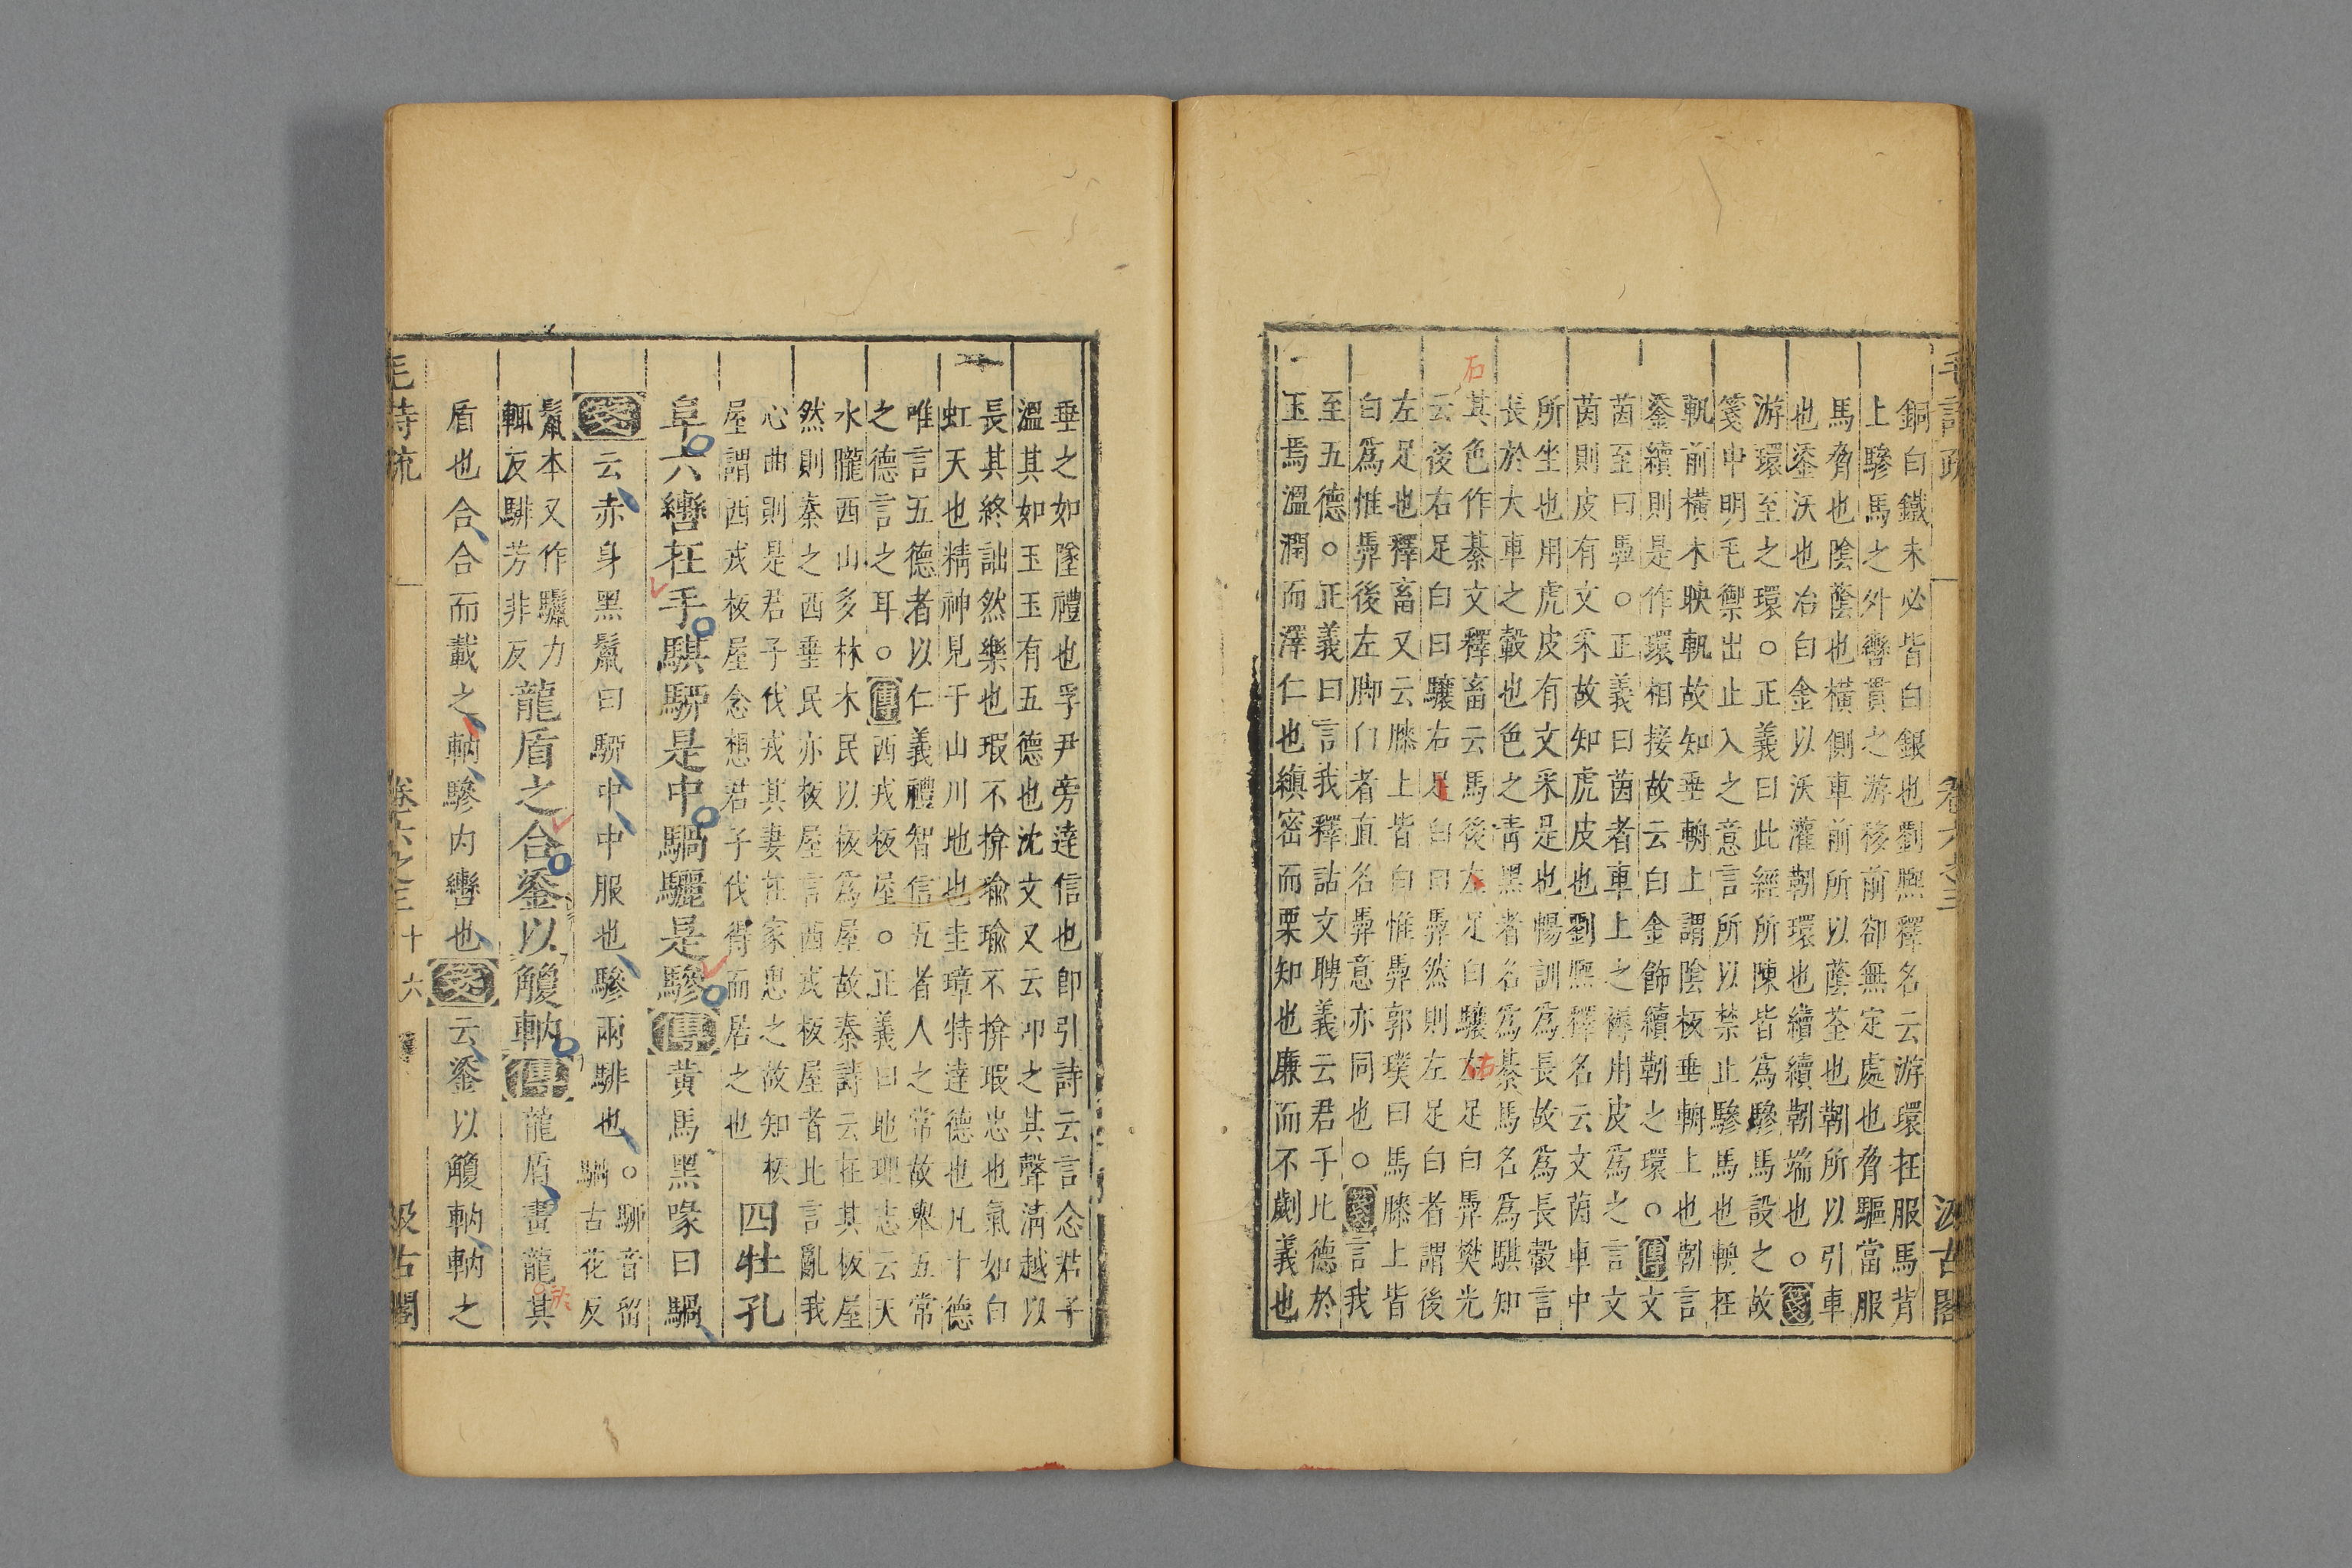 毛詩疏 卷六之三 汲古閣
銅白鐵未必皆白銀也劉熈釋名云游環在服馬背
上驂馬之外轡貫之游移前卻無定處也脅驅當服
馬脅也陰蔭也橫側車前所以蔭荃也靷所以引車
也鋈沃也冶白金以沃灌靷環也續續靷端也○箋
游環至之環○正義曰此經所陳皆爲驂馬設之故
箋申明毛禦出止入之意言所以禁止驂馬也軜在
軌前橫木映軌故知垂輈上謂陰板垂輈上也靷言
鋈續則是作環相接故云白金飾續靷之環○傳文
茵至曰馵○正義曰茵者車上之褥用皮爲之言文
茵則皮有文采故知虎皮也劉熈釋名云文茵車中
所坐也用虎皮有文采是也暢訓爲長故爲長轂言
長於大車之轂也色之青黑者名爲綦馬名爲騏知
其色作綦文釋畜云馬後左足白驤左足白馵樊光
云後右足白曰驤右足白曰馵然則左足白者謂後
左足也釋畜又云膝上皆白惟馵郭璞曰馬膝上皆
白爲惟馵後左脚白者直名馵意亦同也○箋言我
至五德○正義曰言我釋詁文聘義云君子比德於
玉焉溫潤而澤仁也縝密而栗知也廉而不劌義也
垂之如墜禮也孚尹旁達信也卽引詩云言念君子
溫其如玉玉有五德也沈文又云叩之其聲淸越以
長其終詘然樂也瑕不揜瑜瑜不揜瑕忠也氣如白
虹天也精神見于山川地也圭璋特達德也凡十德
唯言五德者以仁義禮智信五者人之常故舉五常
之德言之耳○傳西戎板屋○正義曰地理志云天
水隴西山多林木民以板爲屋故秦詩云在其板屋
然則秦之西垂民亦板屋言西戎板屋者此言亂我
心曲則是君子伐戎其妻在家思之故知板
屋謂西戎板屋念想君子伐得而居之也
四牡孔
阜六轡在手騏駵是中騧驪是驂傳黃馬黑喙曰騧
箋云赤身黑鬣曰駵中中服也驂兩騑也○駵音留
騧古花反
鬣本又作䮫力
輒反騑芳非反
龍盾之合鋈以觼軜傳龍盾畫龍其
盾也合合而載之軜驂內轡也箋云鋈以觼軜軜之
毛詩疏 卷六之三 十六 汲古閣
石